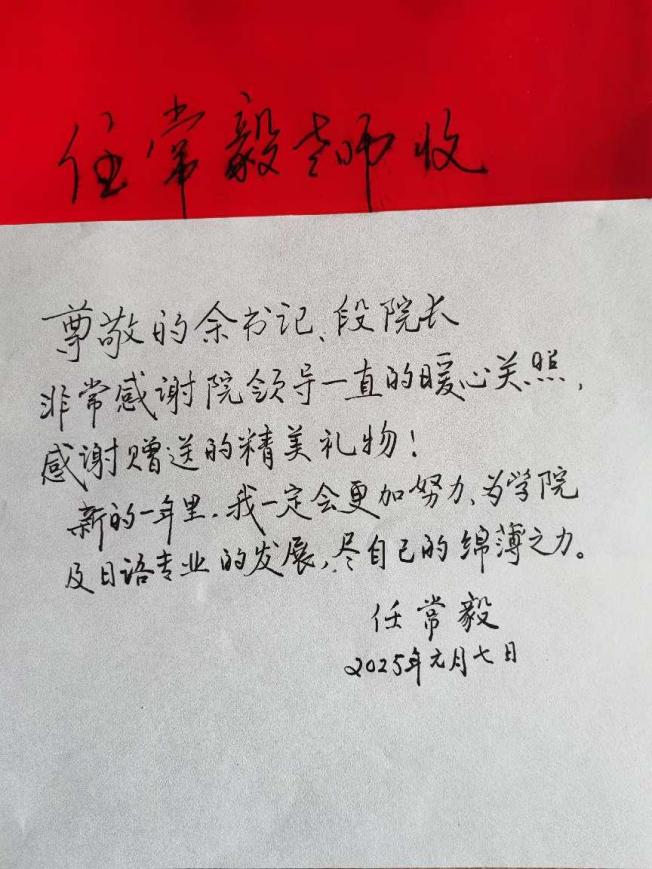 任常毅老师收
尊敬的余书记、段院长
非常感谢院领导一直的暖心关照，
感谢赠送的精美礼物！
新的一年里，我一定会更加努力、为学院
及日语专业的发展，尽自己的绵薄之力。
任常毅
2025年元月七日